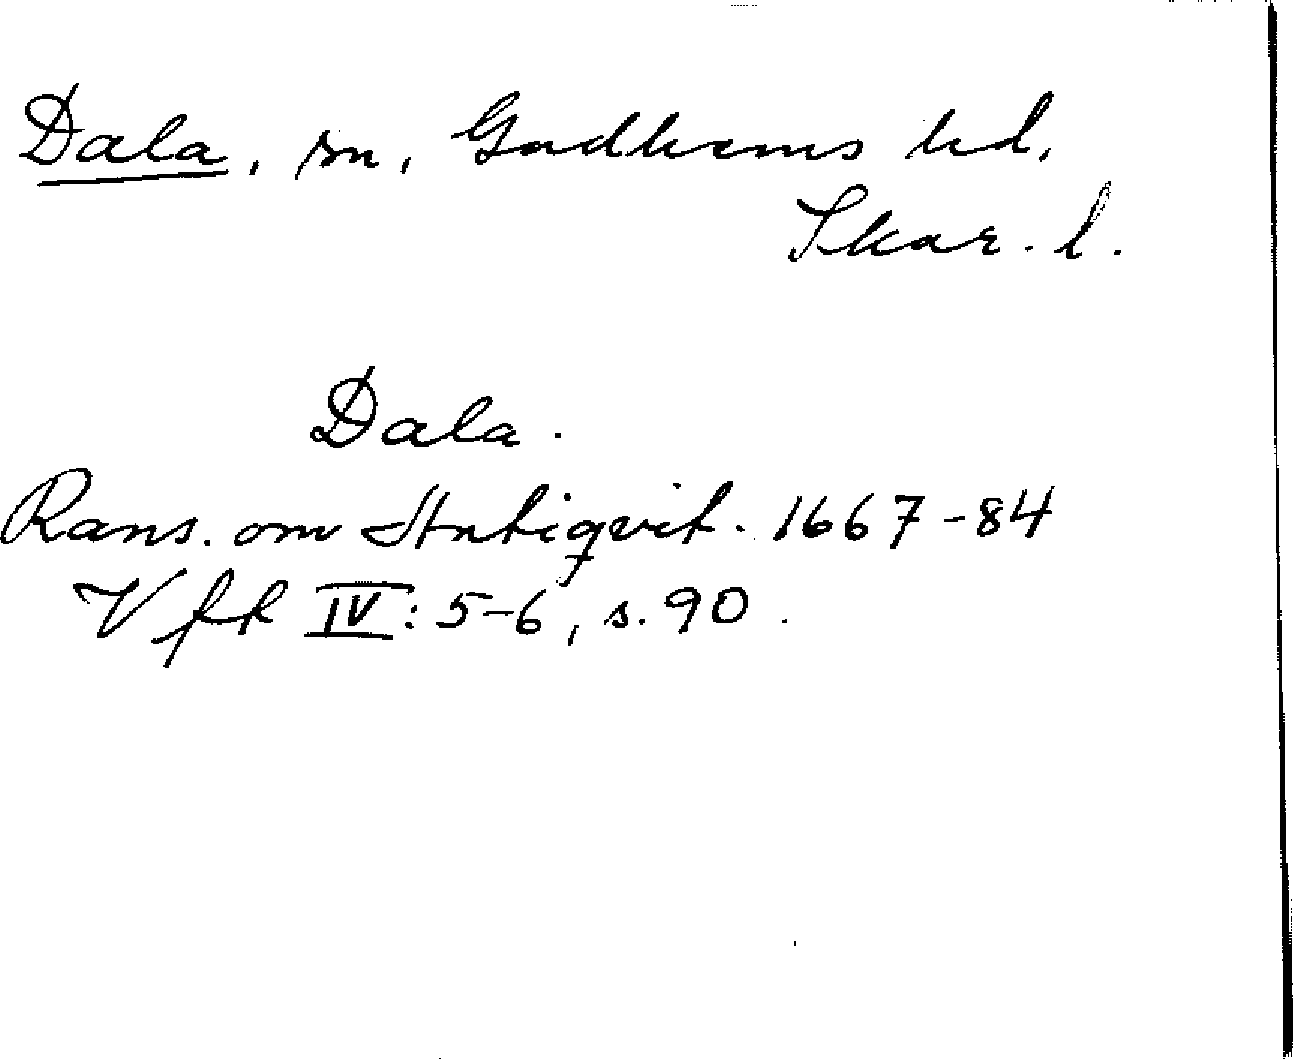 Dala, sn, Gudhems hd,
Skar. l.
Dala.
Rans. om Antiqvit. 1667-84
Vfft IV: 5-6, s. 90.